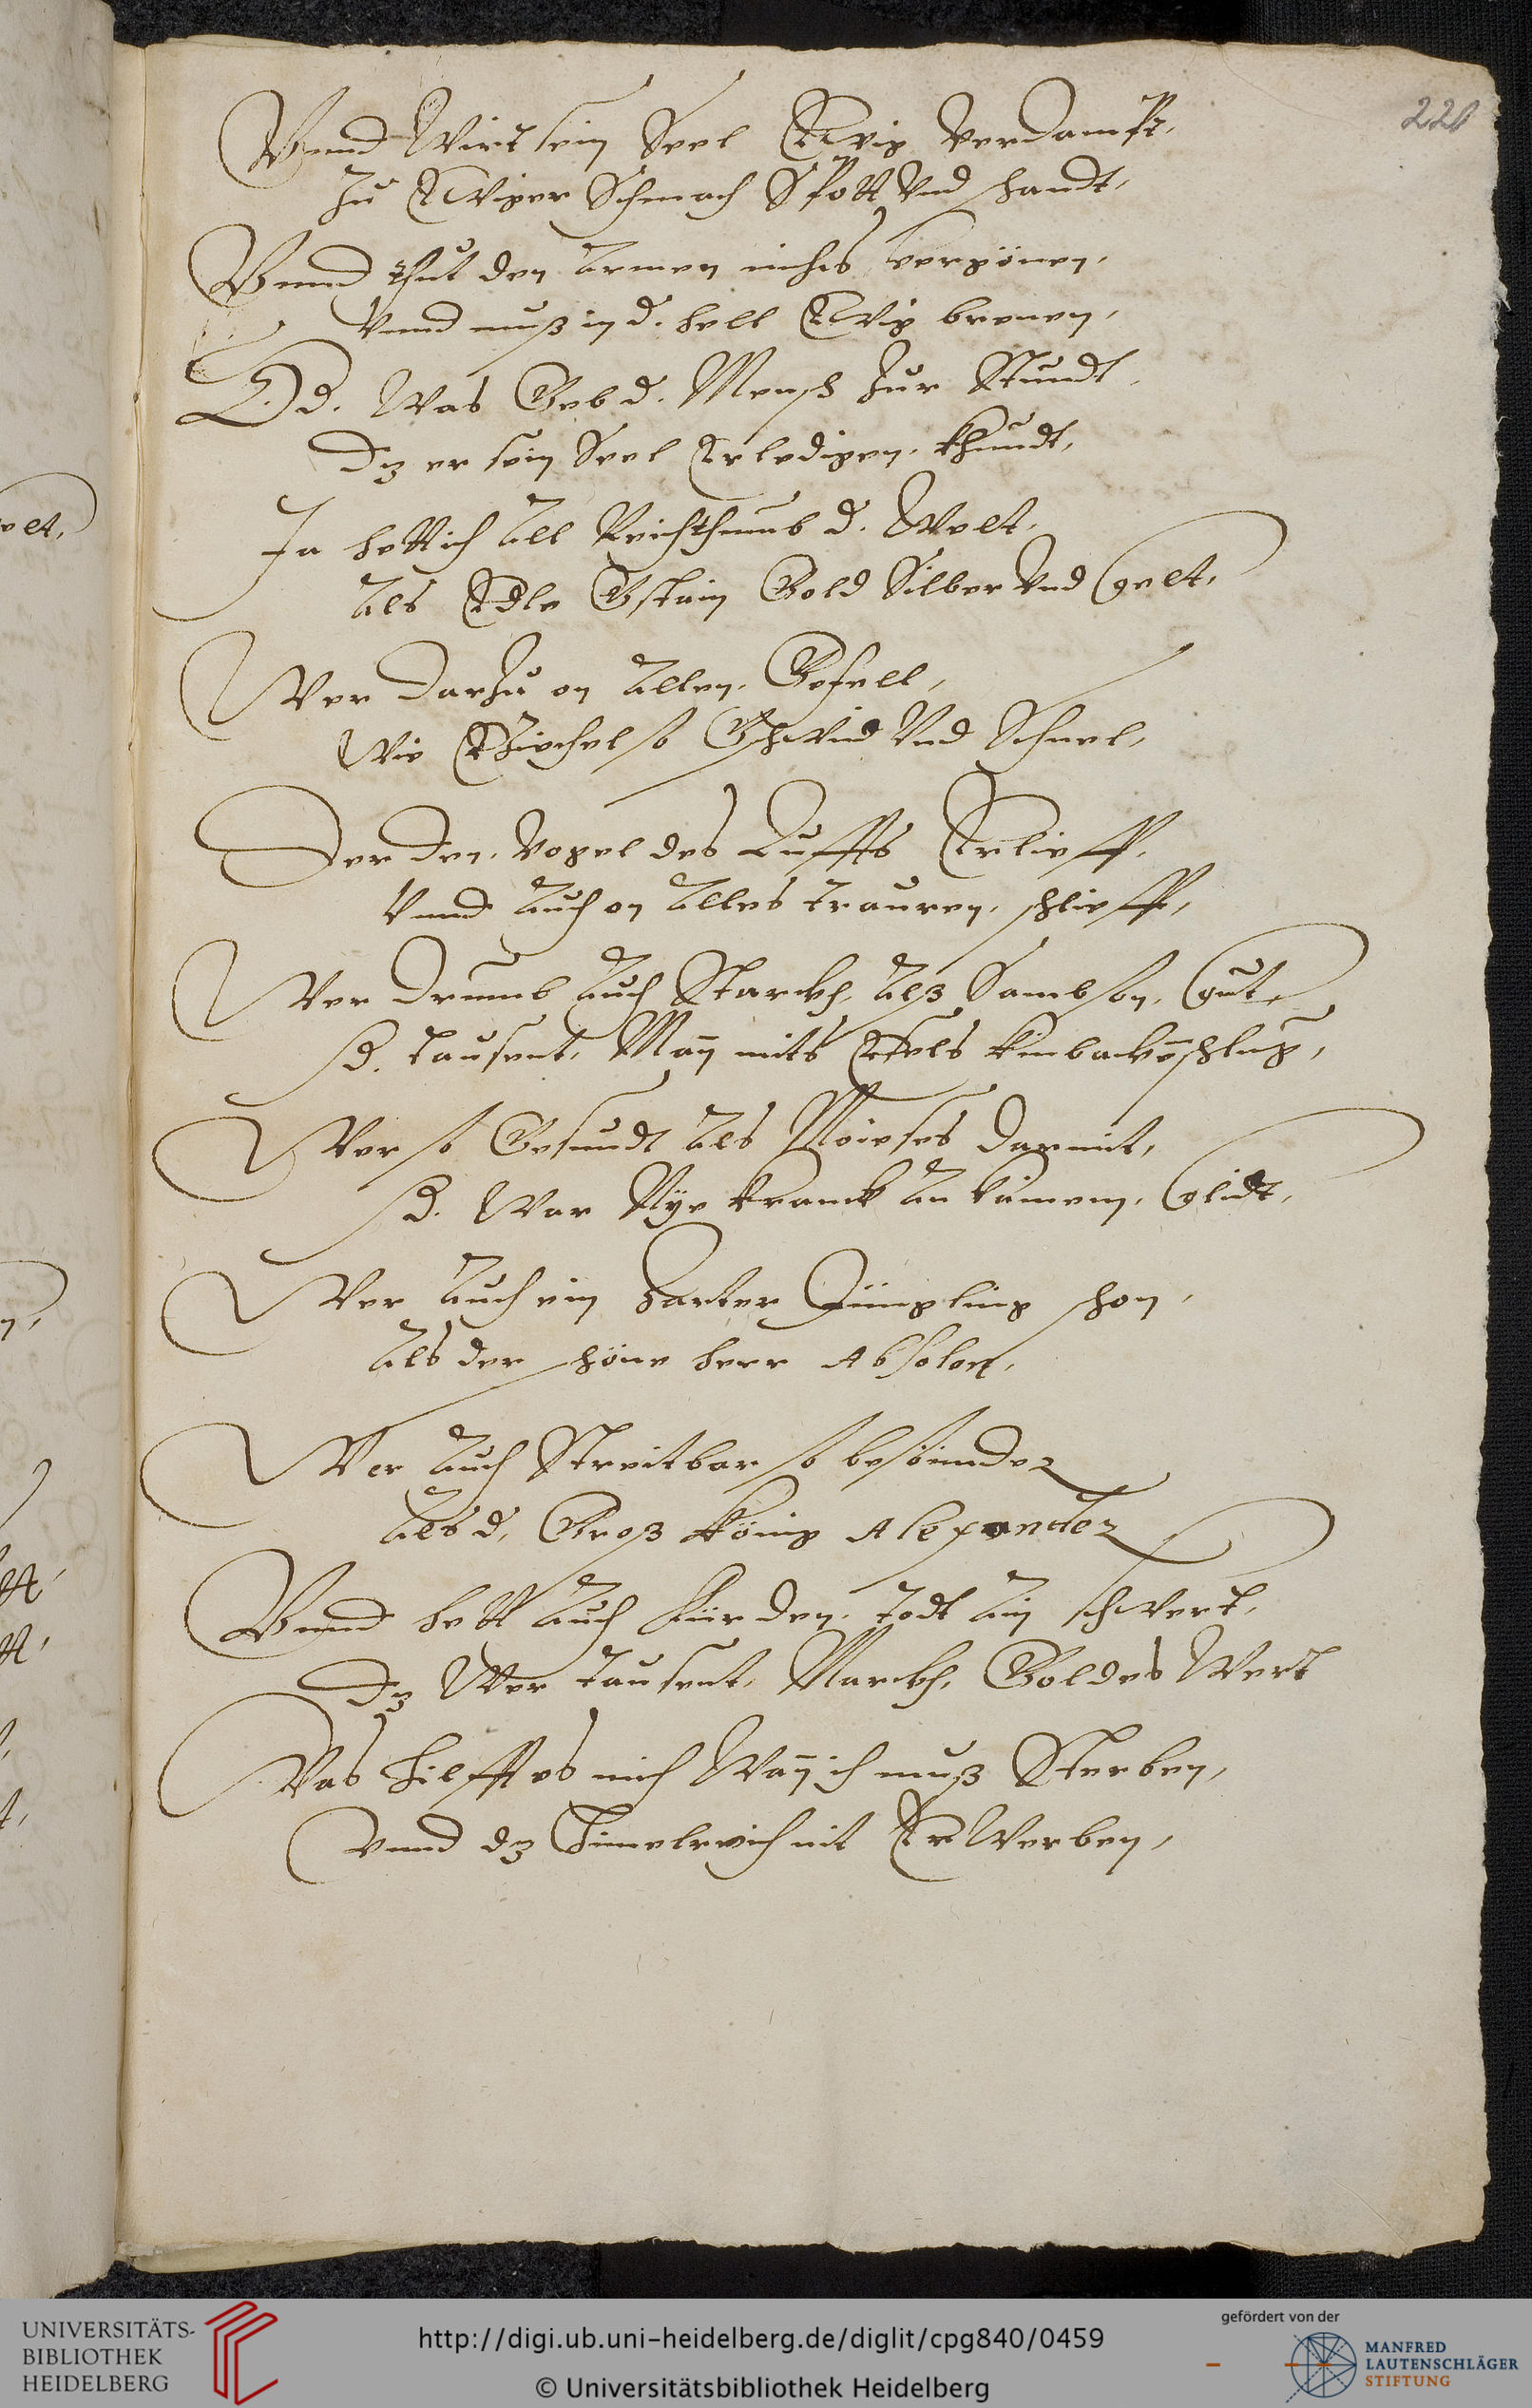 220
Vnnd Wirt sein Seel Ewig verdampt,
Zu Ewiger Schmach Spott Vnd schandt,
Vnnd thut den Armen nichts vergönen,
Vnnd muß in d. hell Ewig brenen,
O d. Was Geb d. Mensch Zur Stundt,
Dz er sein Seel Erledigen khundt,
Ja hett ich All Reichthumb d. Welt,
Als Edle Gstain Gold Silber Vnd gelt,
Wer darzu on Allen Gefell,
Wie so Gschwind Vnd Schnel,
Der den Vogel des Luffts Erlieff,
Vnnd Auch on Alles trauren schlieff,
Wer drumb Auch Starckh Alß Sambson gut
d. tausent Man mits Esels kinbacken schlug,
Wer so Gesundt Als Moises darmit,
d. War Nye kranck An kainem glidt,
Wer Auch ein Zarter Jüngling schon,
Als der schöne herr Absolon,
Wer Auch Streitbar so besonnder
Als d. Groß König Alexander
Vnnd hett Auch für den todt Ain schwert,
Dz Wer tausent Marckh Goldes Wert
Was hilfft es mich Wan ich muß Sterben,
Vnnd dz himelreich nit Er Werben,
UNIVERSITÄTS-
BIBLIOTHEK
HEIDELBERG
http://digi.ub.uni-heidelberg.de/diglit/cpg840/0459
© Universitätsbibliothek Heidelberg
gefördert von der
MANFRED
LAUTENSCHLÄGER
STIFTUNG